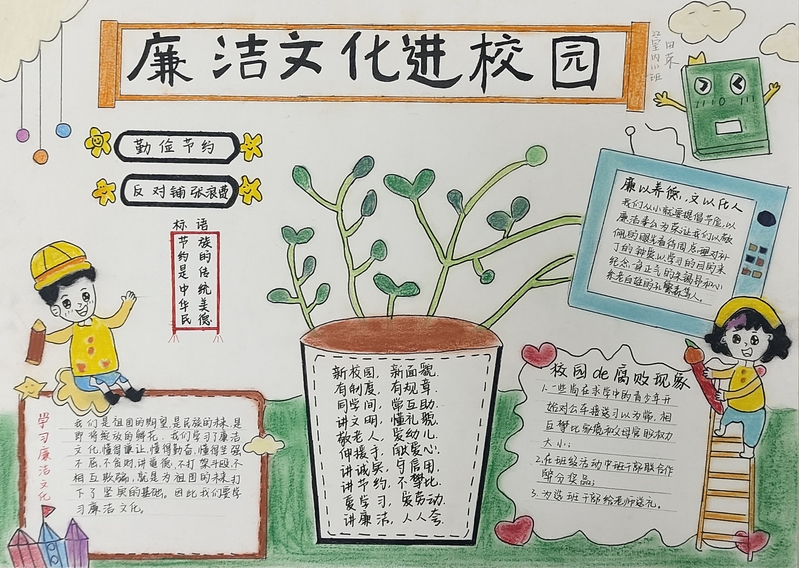 廉洁文化进校园
勤俭节约
反对铺张浪费
标语
节约是中华民
族的传统美德
廉以养德，文以化人
我们从小就要提倡节俭，以
廉洁奉公为荣让我们以敬
佩的眼光看待周总理对补
丁的钟爱以学习的目的来
纪念
新校园，新面貌.
有制度，有规章.
同学间，常互助.
讲文明，懂礼貌.
敬老人，爱幼儿.
伸援手，献爱心.
讲诚实，守信用.
讲节约，不攀比.
爱学习，爱劳动.
讲廉洁，人人夸.
学习廉洁文化
我们是祖国的期望，是民族的未来，是
即将绽放的鲜花。我们学习了廉洁
文化，懂得廉让，懂得勤奋，懂得坚强
不屈、不贪财，讲道德，不打架斗殴，不
相互欺骗，就是为祖国的未来打
下了坚实的基础。因此我们要学
习廉洁文化。
校园de腐败现象
1.一些尚在求学中的青少年开
始对公车接送习以为常，相
互攀比家境和父母官职权力
大小；
2.在班级活动中班干部联合作
弊分奖品；
3.为选班干部给老师送礼。